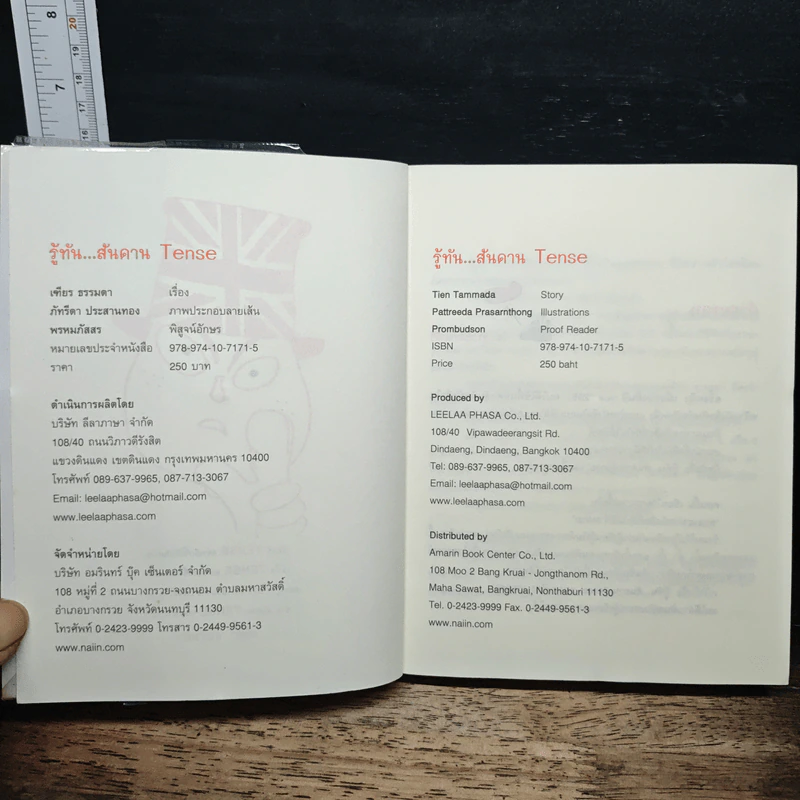 8
7
20
19
18
17
16
รู้ทัน...สันดาน Tense
เฑียร ธรรมดา เรื่อง
ภัทรีดา ประสานทอง ภาพประกอบลายเส้น
พรหมภัสสร พิสูจน์อักษร
หมายเลขประจำหนังสือ 978-974-10-7171-5
ราคา 250 บาท
ดำเนินการผลิตโดย
บริษัท ลีลาภาษา จำกัด
108/40 ถนนวิภาวดีรังสิต
แขวงดินแดง เขตดินแดง กรุงเทพมหานคร 10400
โทรศัพท์ 089-637-9965, 087-713-3067
Email: leelaaphasa@hotmail.com
www.leelaaphasa.com
จัดจำหน่ายโดย
บริษัท อมรินทร์ บุ๊ค เซ็นเตอร์ จำกัด
108 หมู่ที่ 2 ถนนบางกรวย-จงถนอม ตำบลมหาสวัสดิ์
อำเภอบางกรวย จังหวัดนนทบุรี 11130
โทรศัพท์ 0-2423-9999 โทรสาร 0-2449-9561-3
www.naiin.com
รู้ทัน...สันดาน Tense
Tien Tammada Story
Pattreeda Prasarnthong Illustrations
Prombudson Proof Reader
ISBN 978-974-10-7171-5
Price 250 baht
Produced by
LEELAA PHASA Co., Ltd.
108/40 Vipawadeerangsit Rd.
Dindaeng, Dindaeng, Bangkok 10400
Tel: 089-637-9965, 087-713-3067
Email: leelaaphasa@hotmail.com
www.leelaaphasa.com
Distributed by
Amarin Book Center Co., Ltd.
108 Moo 2 Bang Kruai - Jongthanom Rd.,
Maha Sawat, Bangkruai, Nonthaburi 11130
Tel. 0-2423-9999 Fax. 0-2449-9561-3
www.naiin.com